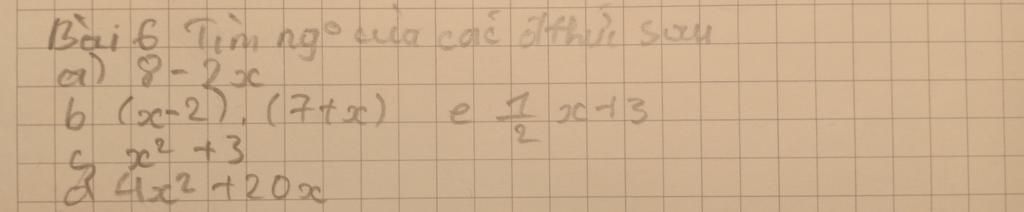 Bài 6 Tìm ngº của các đthức sau
a) 8 - 2x
b (x-2).(7+x) e 1/2 x+3
c x² + 3
d 4x² + 20x